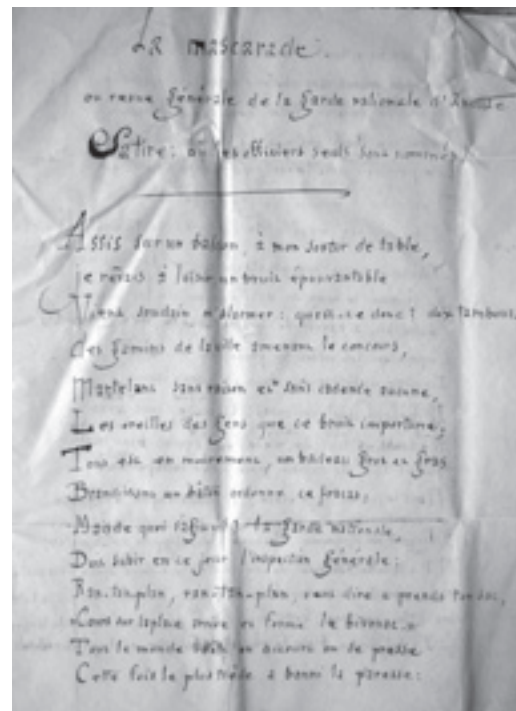 La mascarade.
ou revue générale de la garde nationale d'
Satire: où les officiers seuls sont nommés
Assis sur un balcon, à mon sortir de table,
je rêvais à loisir un bruit épouvantable
Viens soudain m'alarmer: qu'est-ce donc? dix tambours,
des gamins de la ville amenant le concours,
Martelant sans raison et sans cadence aucune,
Les oreilles des gens que ce bruit importune;
Tout est en mouvement, un bedeau gros et gras
Brandissant un bâton ordonne ce fracas,
quoi la garde nationale,
Doit subir en ce jour l'inspection générale;
Ran-tan-plan, ran-tan-plan, sans dire
sur la place on forme le bivouac
Tout le monde on accourt on se presse
Cette fois le plus tiède a banni la paresse: